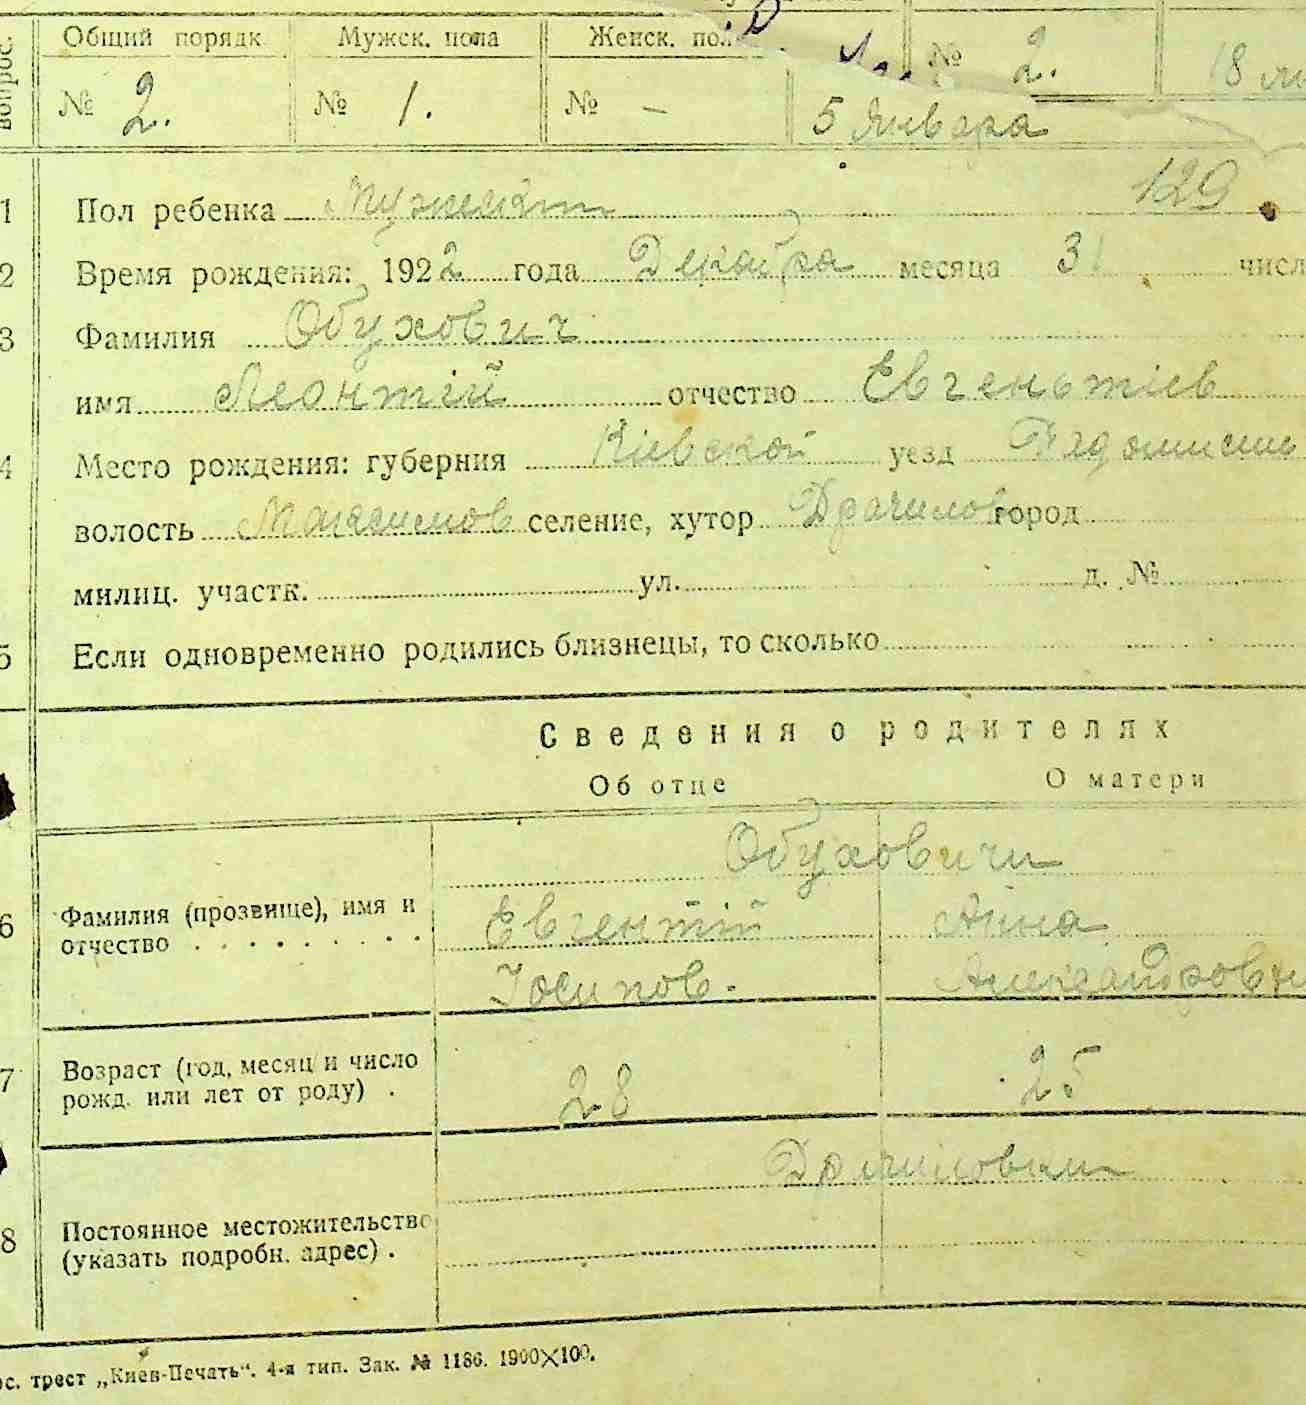 вопрос. Общий порядк. Мужск. пола Женск. пол
№ 2.
18
№ 2. № 1. № – 5 Января
1 Пол ребенка Мужеский 129
2 Время рождения: 1922 года Декабря месяца 31 числ
3 Фамилия Обухович
имя Леонтій отчество Евгеньтіев
4 Место рождения: губерния Кіевской уезд Радомысль
волость Максимов селение, хутор Драчилов город
милиц. участк. ул. д. №
5 Если одновременно родились близнецы, то сколько
Сведения о родителях
Об отце О матери
Обуховичи
6 Фамилия (прозвище), имя и отчество Евгентій Анна
Іосипов. Александровн
7 Возраст (год, месяц и число
рожд. или лет от роду) . 28 25
8 Постоянное местожительство
(указать подробн. адрес) .
ос. трест „Киев-Печать". 4-я тип. Зак. № 1186. 1900×100.